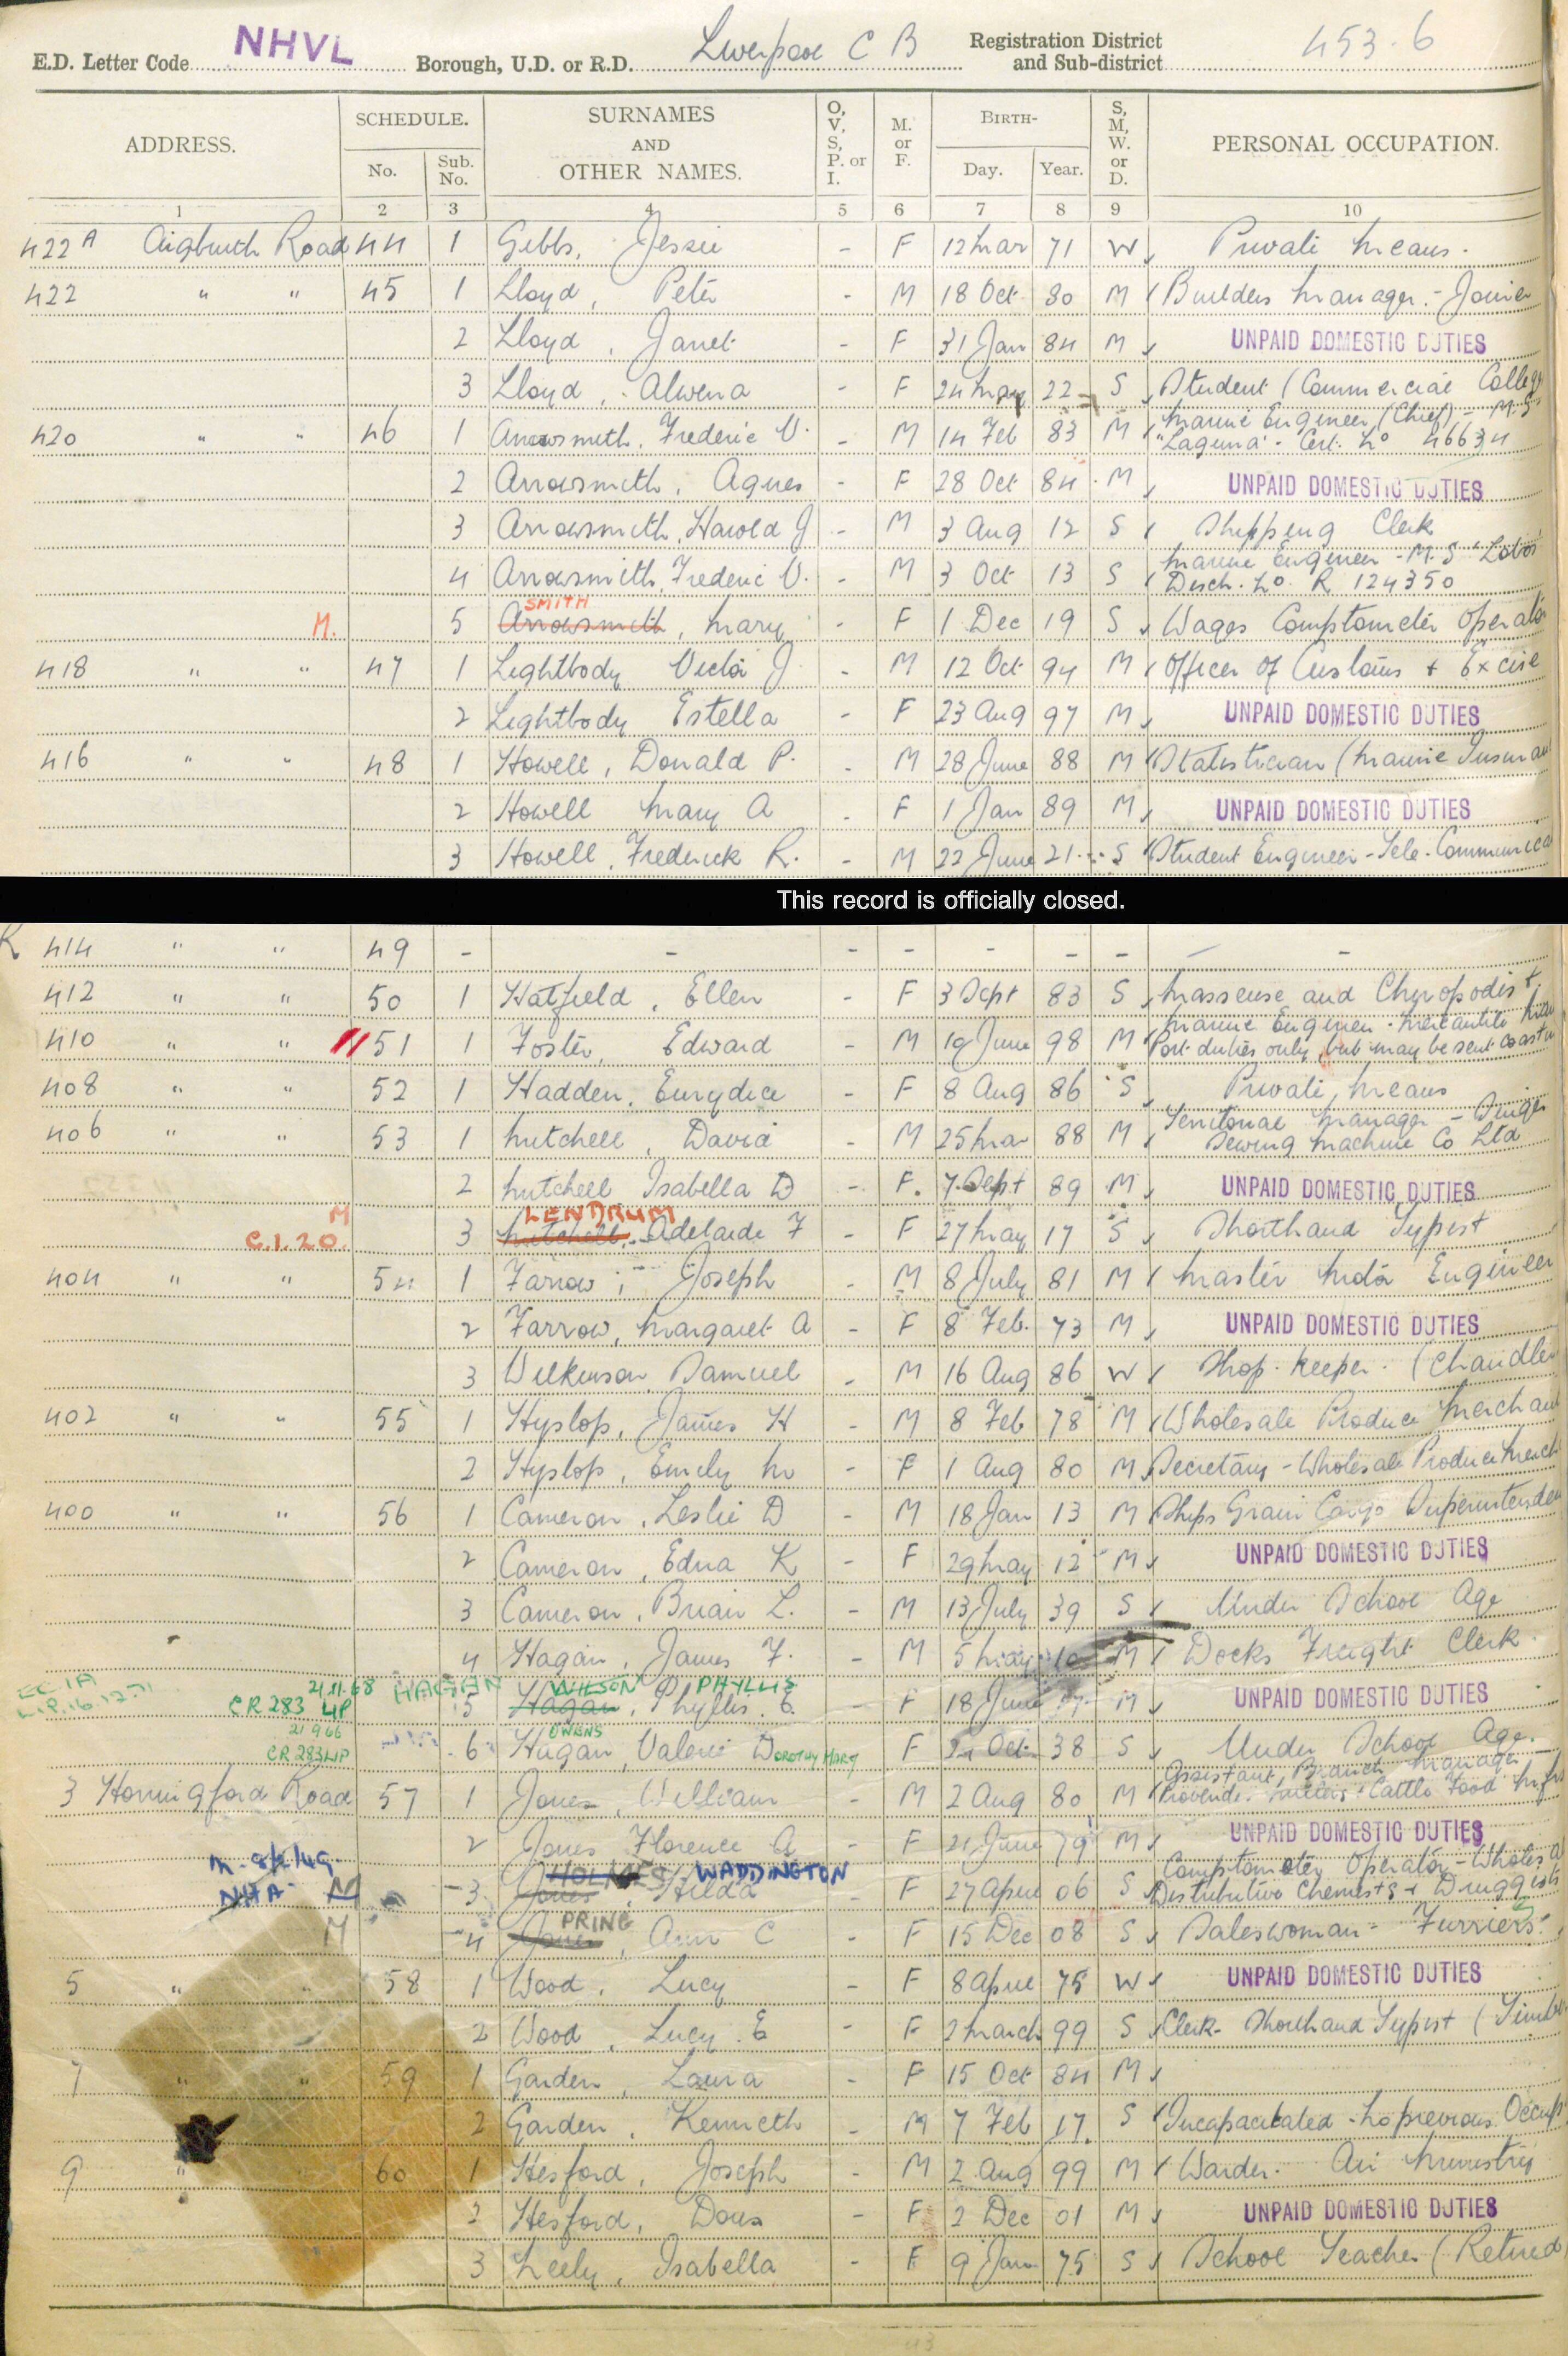 E.D. Letter Code NHVL Borough, U.D. or R.D. Liverpool C B Registration District and Sub-district 453.6
ADDRESS. SCHEDULE. No. Sub. No. SURNAMES AND OTHER NAMES. O, V, S, P. or I. M. or F. BIRTH- Day. Year. S, M, W. or D. PERSONAL OCCUPATION.
1 2 3 4 5 6 7 8 9 10
422A Aigburth Road 44 1 Gibbs, Jessie - F 12 Mar 71 W Private Means.
422 " " 45 1 Lloyd, Peter - M 18 Oct 80 M Builders Manager - Joiner
2 Lloyd, Janet - F 31 Jan 84 M UNPAID DOMESTIC DUTIES
3 Lloyd, Alwena - F 24 May 22 S Student (Commercial College
420 " " 46 1 Arrowsmith, Frederic V. - M 14 Feb 83 M Marine Engineer (Chief) - M.S "Laguna" - Cert. No 46634
2 Arrowsmith, Agnes - F 28 Oct 84 M UNPAID DOMESTIC DUTIES
3 Arrowsmith, Harold J - M 3 Aug 12 S Shipping Clerk
4 Arrowsmith, Frederic V. - M 3 Oct 13 S Marine Engineer - M.S "Lobos" Disch. No. R 124350
SMITH
M. 5 Arrowsmith, Mary - F 1 Dec 19 S Wages Comptometer Operator
418 " " 47 1 Lightbody Victor J. - M 12 Oct 94 M Officer of Customs + Excise
2 Lightbody Estella - F 23 Aug 97 M UNPAID DOMESTIC DUTIES
416 " " 48 1 Howell, Donald P. - M 28 June 88 M Statistician (Marine Insuran
2 Howell Mary A - F 1 Jan 89 M UNPAID DOMESTIC DUTIES
3 Howell, Frederick R. - M 22 June 21 S Student Engineer - Tele-Communica
This record is officially closed.
R 414 " " 49 - - - - - - - -
412 " " 50 1 Hatfield, Ellen - F 3 Sept 83 S Masseuse and Chiropodist
410 " " 51 1 Foster, Edward - M 19 June 98 M Marine Engineer - Mercantile Port duties only, but may be sent
408 " " 52 1 Hadden, Eurydice - F 8 Aug 86 S Private Means
406 " " 53 1 Mitchell, David - M 25 Mar 88 M Territorial Manager - Singer Sewing Machine Co Ltd
2 Mitchell Isabella D - F. 7 Sept 89 M UNPAID DOMESTIC DUTIES
M LENDRUM
C.1.20. 3 Mitchell, Adelaide F - F 27 May 17 S Shorthand Typist
404 " " 54 1 Farrow, Joseph - M 8 July 81 M Master Motor Engineer
2 Farrow, Margaret A - F 8 Feb. 73 M UNPAID DOMESTIC DUTIES
3 Wilkinson, Samuel - M 16 Aug 86 W Shop-keeper. (Chandler
402 " " 55 1 Hyslop, James H - M 8 Feb 78 M Wholesale Produce Merchant
2 Hyslop, Emily M - F 1 Aug 80 M Secretary - Wholesale Produce Merch
400 " " 56 1 Cameron, Leslie D - M 18 Jan 13 M Ships Grain Cargo Superintenden
2 Cameron, Edna K - F 29 May 12 M UNPAID DOMESTIC DUTIES
3 Cameron, Brian L. - M 13 July 39 S Under School Age
4 Hagan, James F. - M 5 May 10 M Docks Freight Clerk
21.11.68 HAGAN WILSON PHYLLIS
CR 283 5 Hagan, Phyllis. E. - F 18 June M UNPAID DOMESTIC DUTIES
21 9 66 OWENS
CR 283 6 Hagan, Valerie DOROTHY MARY F Oct 38 S Under School Age.
3 Horringford Road 57 1 Jones, William - M 2 Aug 80 M Assistant Branch Manager Provender Millers & Cattle Food
2 Jones Florence A - F 21 June 79 M UNPAID DOMESTIC DUTIES
HOLMES WADDINGTON
NHA M 3 Jones Hilda - F 27 April 06 S Comptometer Operator - Wholesa Distributive Chemists & Druggists
PRING
M 4 Jones, Ann C - F 15 Dec 08 S Saleswoman - Furriers.
5 " " 58 1 Wood, Lucy - F 8 April 75 W UNPAID DOMESTIC DUTIES
2 Wood, Lucy E - F 2 March 99 S Clerk - Shorthand Typist (Timber
7 " " 59 1 Garden, Laura - F 15 Oct 84 M
2 Garden, Kenneth - M 7 Feb 17 S Incapacitated - No previous Occup
9 " " 60 1 Hesford, Joseph - M 2 Aug 99 M Warder. Air Ministry
2 Hesford, Doris - F 2 Dec 01 M UNPAID DOMESTIC DUTIES
3 Leely, Isabella - F 9 Jan 75 S School Teacher (Retired